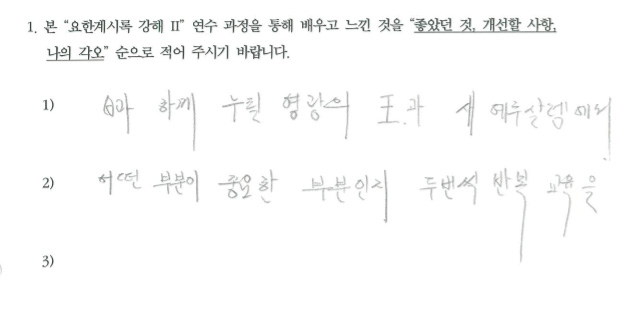 1. 본 “요한계시록 강해 II” 연수 과정을 통해 배우고 느낀 것을 “좋았던 것, 개선할 사항,
나의 각오” 순으로 적어 주시기 바랍니다.
1) 함께 누릴 영광의 王과 새 예루살렘에의
2) 어떤 부분이 중요한 부분인지 두번씩 반복 교육을
3)